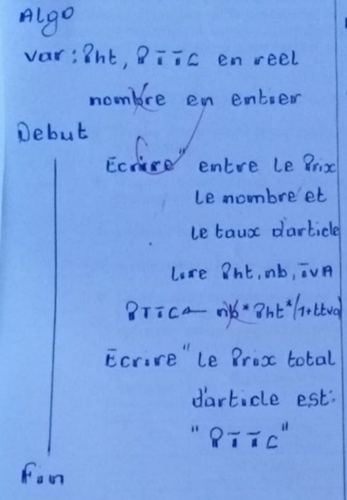 Algo
var : Pht, PTTC en reel
nombre en entier
Debut
Ecrire" entre Le Prix
Le nombre et
Le taux d'article
Lire Pht, nb, TVA
PTTC ← nb * Pht * (1+ttva)
Ecrire" Le Prix total
d'article est:
"PTTC"
Fin